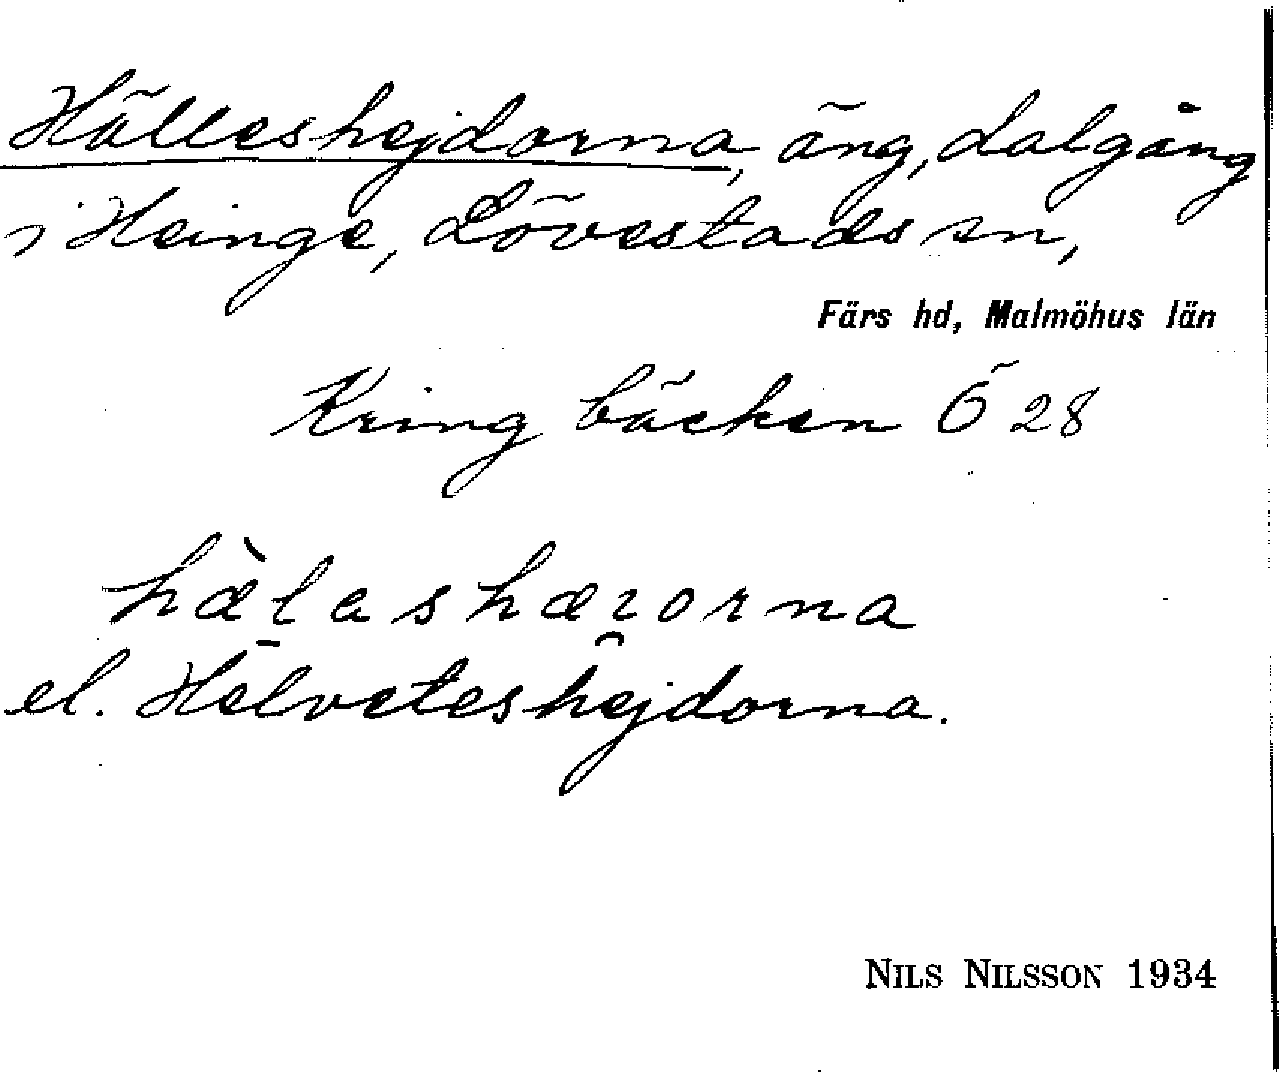 Hälleshejdorna, äng, dalgång
i Heinge, Lövestads sn,
Färs hd, Malmöhus län
Kring bäcken Ö 28
el. Helveteshejdorna.
NILS NILSSON 1934